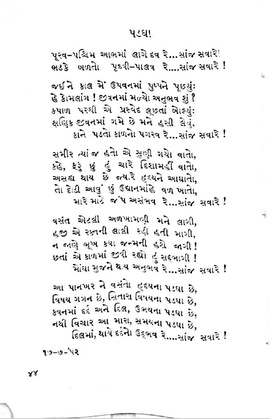 પડઘા
પૂરવ-પશ્ચિમ આભમાં લાગે દવ રે...સાંજ સવારે !
ભડકે બળતો પૃથ્વી-પાલવ રે...સાંજ સવારે !
જઈને કાલ મેં ઉપવનમાં પુષ્પને પૂછ્યું:
હે કોમલાંગ ! જીવનમાં મળ્યો અનુભવ શું ?
કપાળ પરથી એ પ્રસ્વેદ લૂછતાં બોલ્યું:
ક્ષણિક જીવનમાં ગમે છે મને હસી લેવું,
કાને પડતો કાળનો પગરવ રે...સાંજ સવારે !
સમીર ત્યાં જ હતો એ સુણી ગયો વાતો,
કહે, ફરું છું હું ચારે દિશામહીં વાતો,
અસહ્ય થાય છે જ્યારે હૃદયને આઘાતો,
તો દોડી આવું છું ઉદ્યાનમાંહે વળ ખાતો,
મારે માટે જંપ અસંભવ રે...સાંજ સવારે !
વસંત એટલી અળખામણી મને લાગી,
હજી એ રક્તની લાલી રહી હતી માગી,
ન જાણે ભૂખ કયા જન્મની હશે જાગી !
છતાં એ કાળમાં જીવી રહ્યો હું સદ્ભાગી !
મોંઘા મુજને થાય અનુભવ રે...સાંજ સવારે !
આ પાનખર ને વસંતો હૃદયના પડઘા છે,
વિષય ગગન છે, સિતારા વિષયના પડઘા છે,
કવનમાં દર્દ અને દિલ, ઉભયના પડઘા છે,
નથી વિચાર આ મારા, સમયના પડઘા છે,
દિલમાં, થાયે દર્દનો ઉદ્ભવ રે...સાંજ સવારે !
૧૭-૭-'૫૨
૪૪